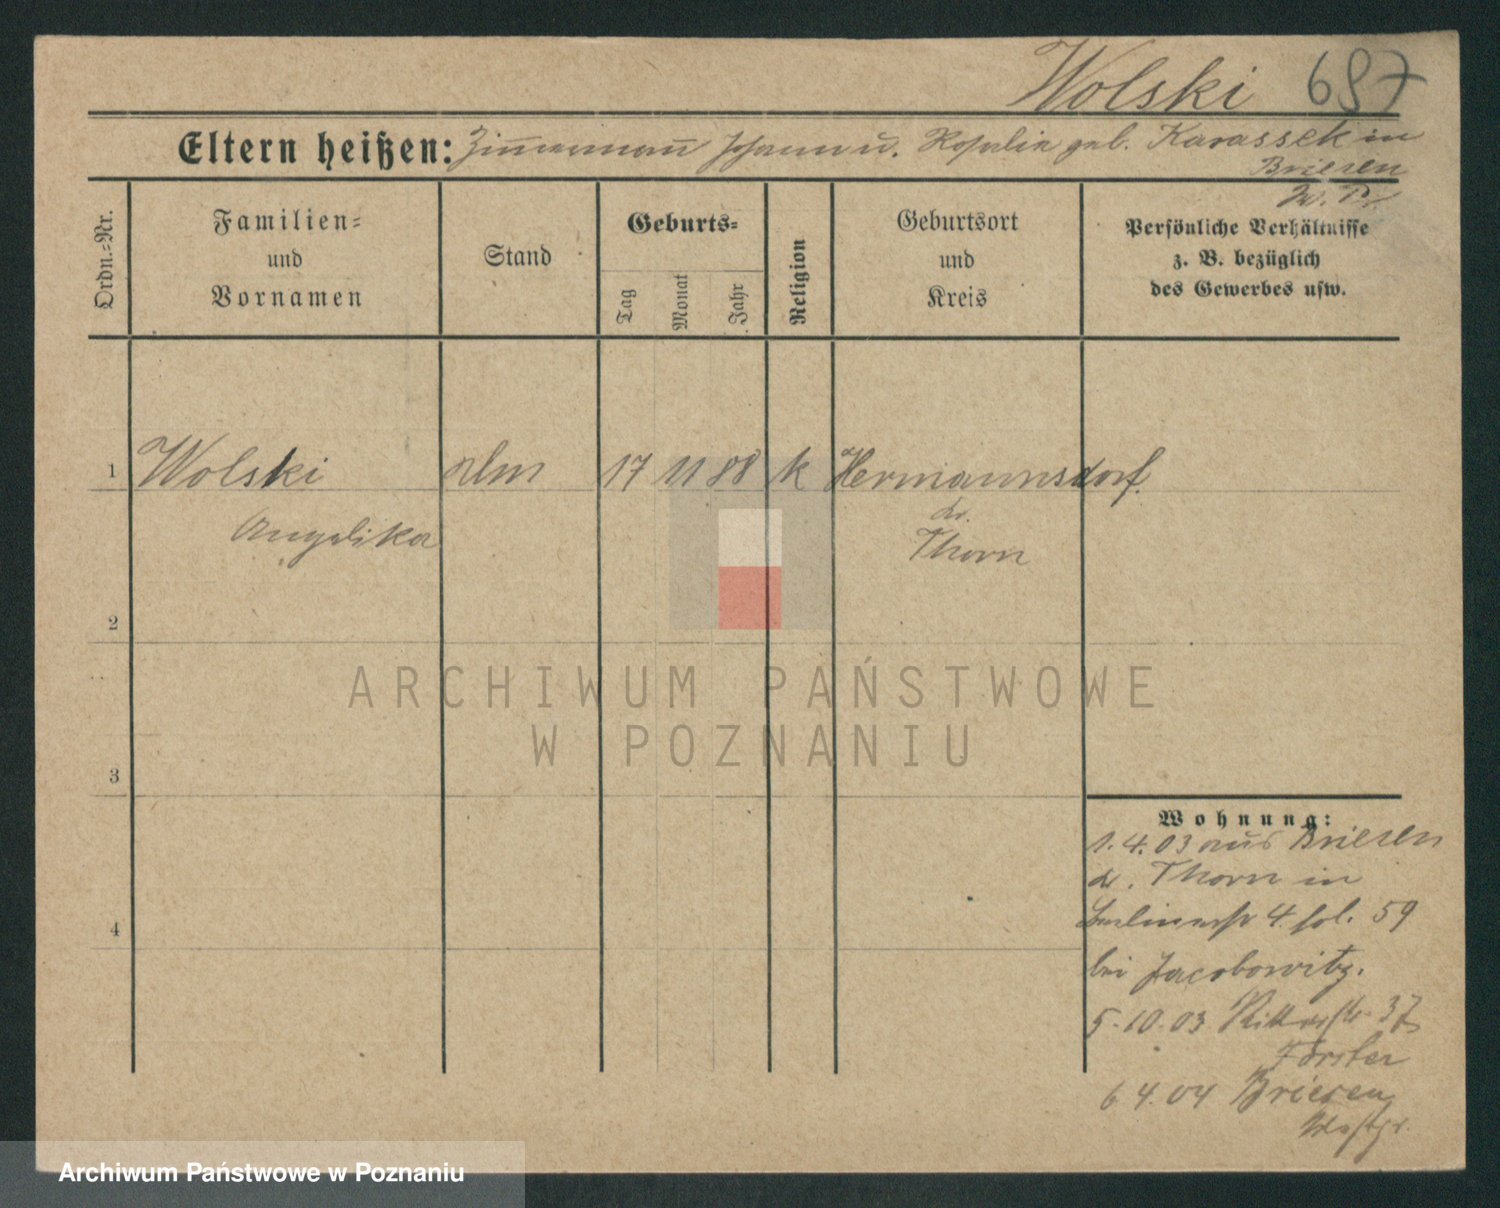 Wolski 697
Eltern heißen: Zimmermann Johann u. Rosalie geb. Karassek in
Briesen
W. Pr.
Ordn.-Nr.
Familien-
und
Vornamen
Stand
Geburts-
Tag
Monat
Jahr
Religion
Geburtsort
und
Kreis
Persönliche Verhältnisse
z. B. bezüglich
des Gewerbes usw.
1 Wolski 17 11 88 k Hermannsdorf.
Angelika
Kr.
Thorn
2
3
4
Wohnung:
1.4.03 aus Briesen
Kr. Thorn in
Berlinerstr 4. fol. 59
bei Jacobowitz.
5.10.03 Ritterstr. 37
Förster
6.4.04 Briesen
Westpr.
ARCHIWUM PAŃSTWOWE
W POZNANIU
Archiwum Państwowe w Poznaniu